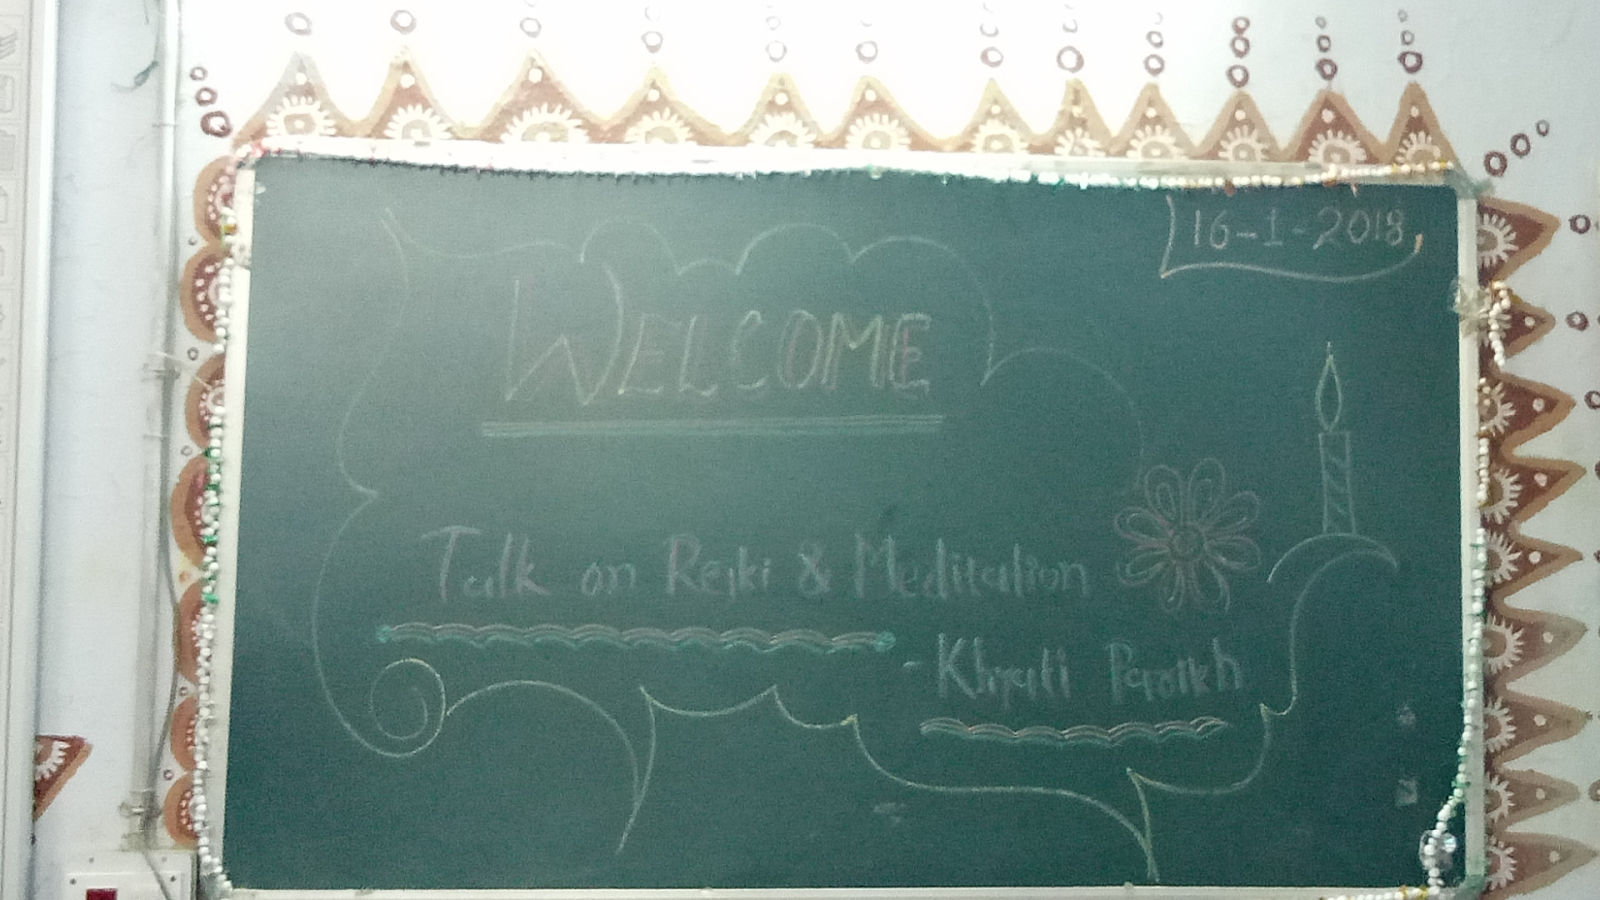 16-1-2018
WELCOME
Talk on Reiki & Meditation
- Khyati Paroikh